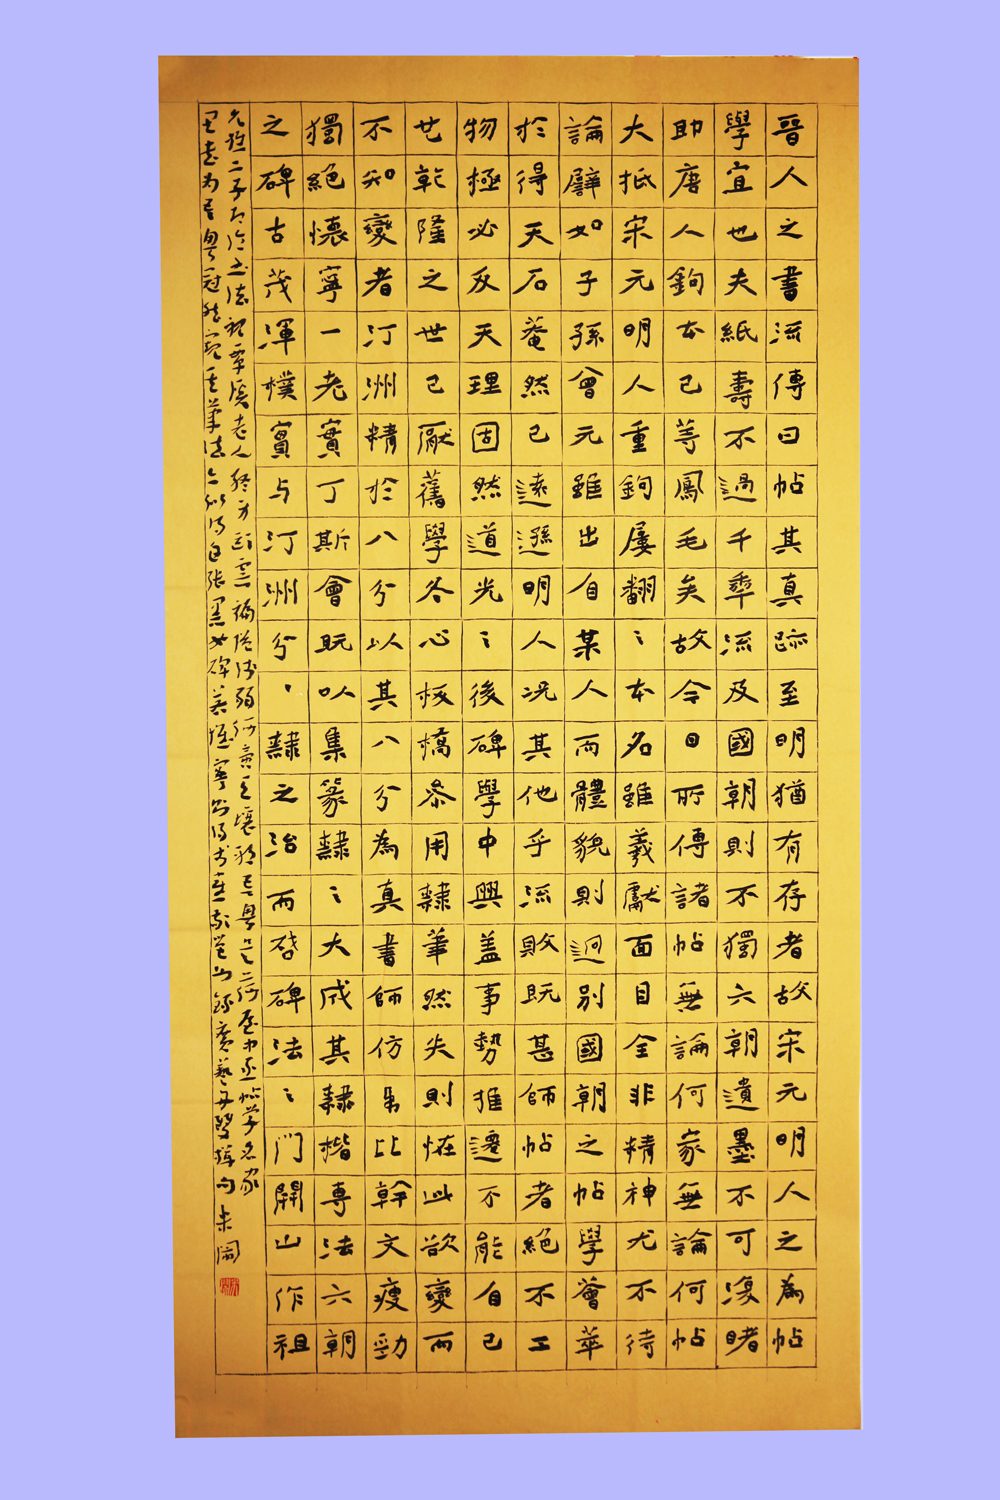 晉人之書流傳曰帖其真跡至明猶有存者故宋元明人之為帖
學宜也夫紙壽不過千秊流及國朝則不獨六朝遺墨不可復睹
助唐人鉤本已等鳳毛矣故今日所傳諸帖無論何家無論何帖
大抵宋元明人重鉤屡翻〻本名雖羲獻面目全非精神尤不待
論譬如子孫會元雖出自某人而體貌則迥別國朝之帖學薈萃
於得天石菴然已遠遜明人况其他乎流敗既甚師帖者絕不工
物極必反天理固然道光〻後碑學中興蓋事勢推遷不能自已
也乾隆之世已厭舊學冬心板橋叅用隸筆然失則怪此欲變而
不知變者汀洲精於八分以其八分為真書師仿弔比幹文瘦勁
獨絕懷寧一老實丁斯會既以集篆隸〻大成其隸楷專法六朝
之碑古茂渾樸實與汀洲分〻隸之治而啓碑法〻門開山作祖
二子 書法視覃溪老人終身 帖學名家
冠 其筆法亦似得自張黑女碑若懷寧則得于 錄廣藝舟雙楫句